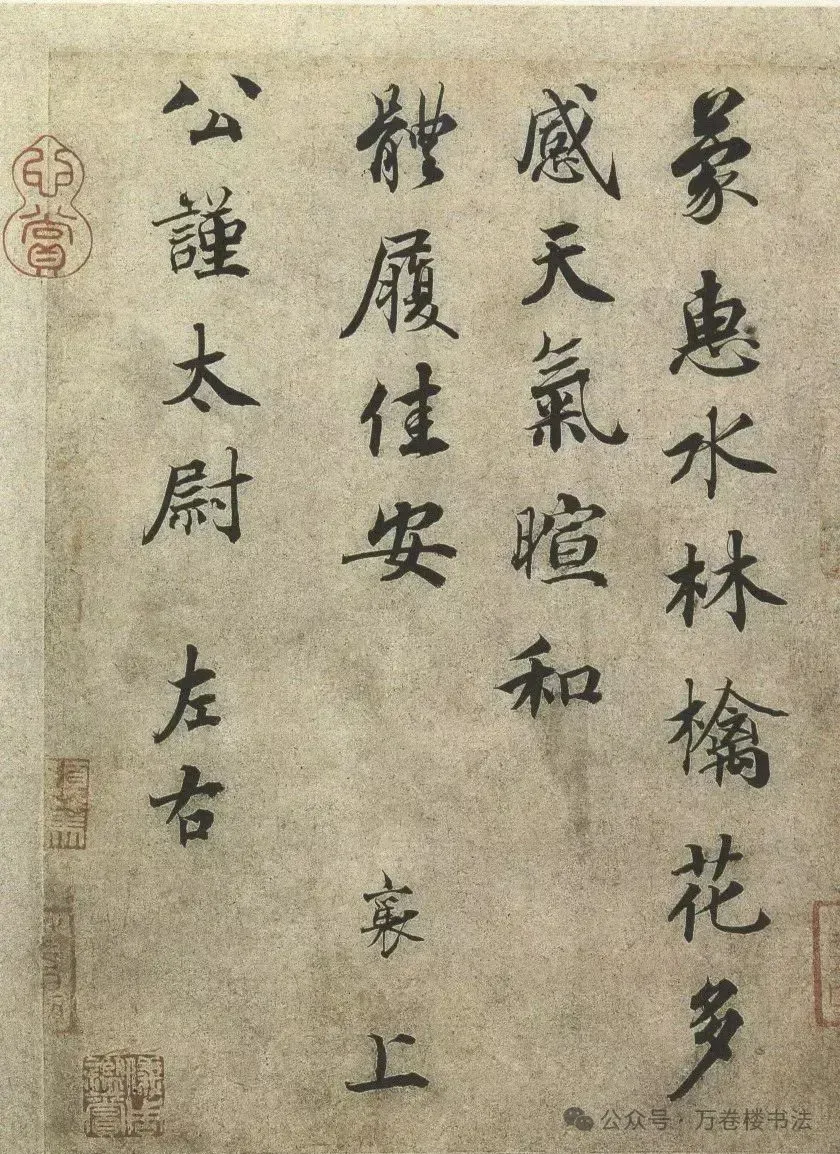 蒙惠水林檎花多
感天氣暄和
體履佳安
襄上
公謹太尉 左右
心賞
公众号·万卷楼书法